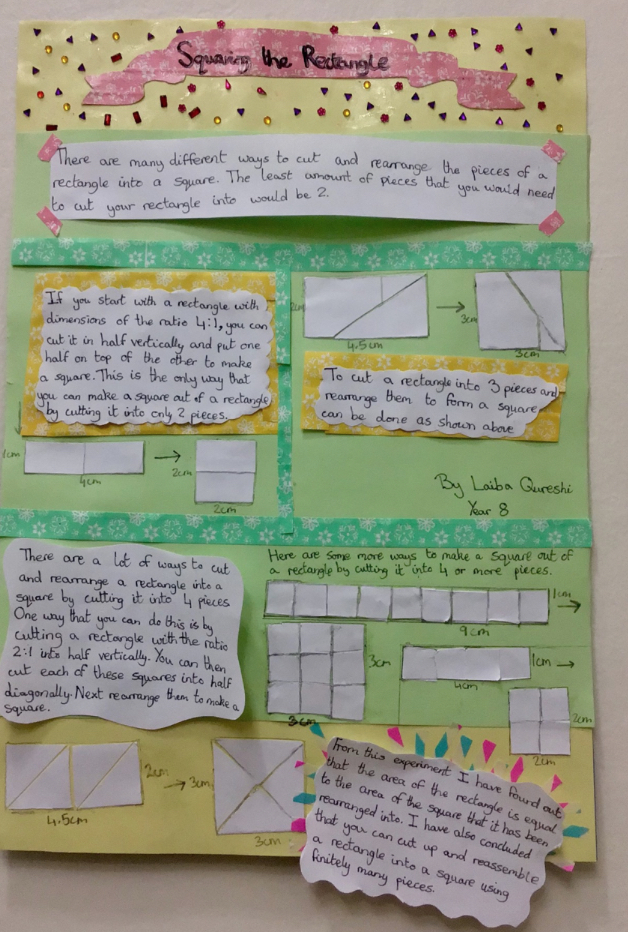 Squaring the Rectangle
There are many different ways to cut and rearrange the pieces of a
rectangle into a square. The least amount of pieces that you would need
to cut your rectangle into would be 2.
If you start with a rectangle with
dimensions of the ratio 4:1, you can
cut it in half vertically and put one
half on top of the other to make
a square. This is the only way that
you can make a square out of a rectangle
by cutting it into only 2 pieces.
1cm
4cm
2cm
2cm
4.5cm
3cm
3cm
To cut a rectangle into 3 pieces and
rearrange them to form a square
can be done as shown above
By Laiba Qureshi
Year 8
There are a lot of ways to cut
and rearrange a rectangle into a
square by cutting it into 4 pieces
One way that you can do this is by
cutting a rectangle with the ratio
2:1 into half vertically. You can then
cut each of these squares into half
diagonally. Next rearrange them to make a
square.
2cm
4.5cm
3cm
3cm
Here are some more ways to make a square out of
a rectangle by cutting it into 4 or more pieces.
1cm
9cm
3cm
3cm
1cm
4cm
2cm
2cm
From this experiment I have found out
that the area of the rectangle is equal
to the area of the square that it has been
rearranged into. I have also concluded
that you can cut up and reassemble
a rectangle into a square using
finitely many pieces.